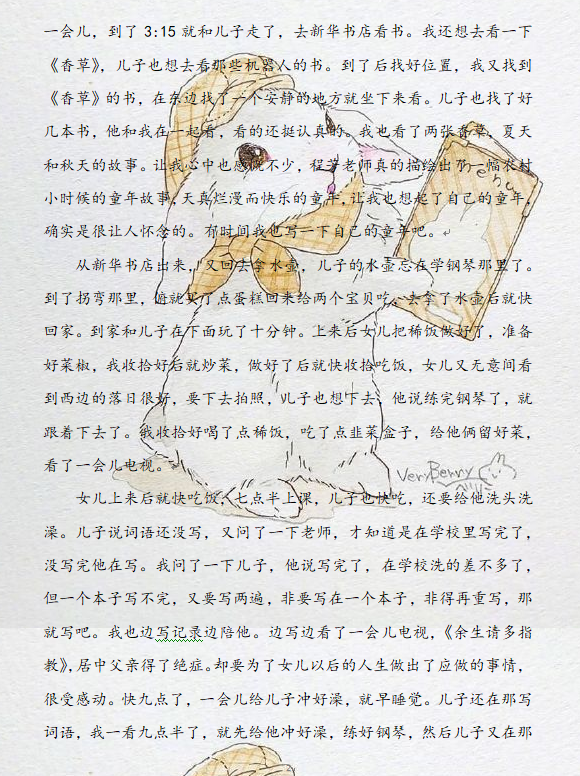 一会儿，到了 3:15 就和儿子走了，去新华书店看书。我还想去看一下
《香草》，儿子也想去看那些机器人的书。到了后找好位置，我又找到
《香草》的书，在东边找了一个安静的地方就坐下来看。儿子也找了好
几本书，他和我在一起看，看的还挺认真的。我也看了两张香草，夏天
和秋天的故事。让我心中也感慨不少，程芳老师真的描绘出了一幅农村
小时候的童年故事，天真烂漫而快乐的童年，让我也想起了自己的童年，
确实是很让人怀念的。有时间我也写一下自己的童年吧。
从新华书店出来，又回去拿水壶，儿子的水壶忘在学钢琴那里了。
到了拐弯那里，俯就买了点蛋糕回来给两个宝贝吃。去拿了水壶后就快
回家。到家和儿子在下面玩了十分钟。上来后女儿把稀饭做好了，准备
好菜椒，我收拾好后就炒菜，做好了后就快收拾吃饭，女儿又无意间看
到西边的落日很好，要下去拍照，儿子也想下去，他说练完钢琴了，就
跟着下去了。我收拾好喝了点稀饭，吃了点韭菜盒子，给他俩留好菜，
看了一会儿电视。
VeryBerry
女儿上来后就快吃饭，七点半上课，儿子也快吃，还要给他洗头洗
澡。儿子说词语还没写，又问了一下老师，才知道是在学校里写完了，
没写完他在写。我问了一下儿子，他说写完了，在学校洗的差不多了，
但一个本子写不完，又要写两遍，非要写在一个本子，非得再重写，那
就写吧。我也边写记录边陪他。边写边看了一会儿电视，《余生请多指
教》，居中父亲得了绝症。却要为了女儿以后的人生做出了应做的事情，
很受感动。快九点了，一会儿给儿子冲好澡，就早睡觉。儿子还在那写
词语，我一看九点半了，就先给他冲好澡，练好钢琴，然后儿子又在那